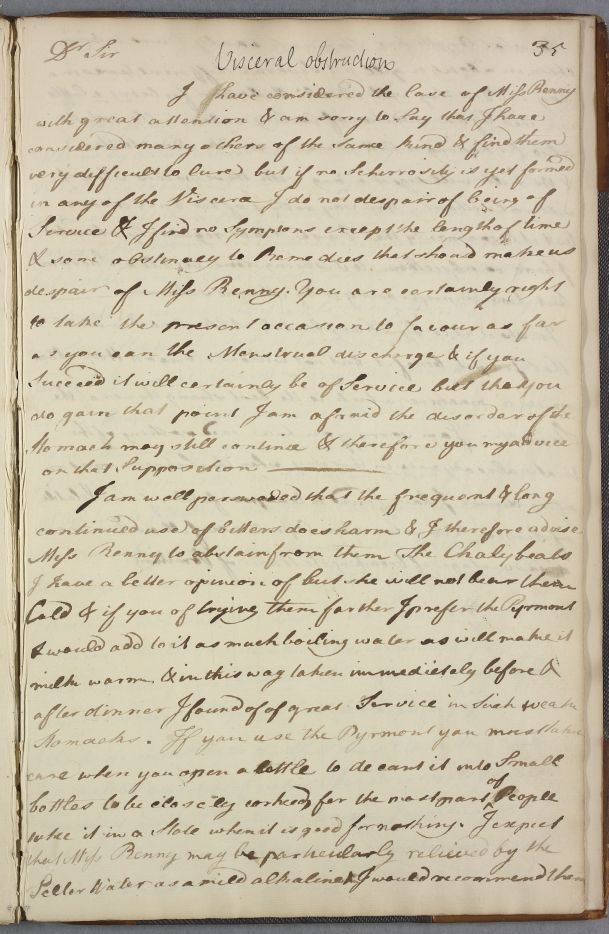 Dr Sir
Visceral obstruction
35
I have considered the Case of Miss Renny
with great attention & am sorry to say that I have
considered many others of the same kind & find them
very difficult to Cure but if no Schirrosity is yet formed
in any of the Viscera I do not despair of being of
Service & I find no Symptoms except the length of time
& some obstinacy to Remedies that should make us
despair of Miss Renny. You are certainly right
to take the present occasion to favour as far
as you can the Menstrual discharge & if you
Succeed it will certainly be of Service but tho you
do gain that point I am afraid the disorder of the
Stomach may still continue & therefore you my advice
on that Supposition
I am well perswaded that the frequent & long
continued use of bitters does harm & I therefore advise
Miss Renny to abstain from them The Chalybeats
I have a better opinion of but she will not bear them
Cold & if you of trying them farther I prefer the Pyrmont
& would add to it as much boiling water as will make it
milk warm & in this way taken immediately before &
after dinner I found of of great Service in Such weak
Stomachs. If you use the Pyrmont you must take
care when you open a bottle to decant it into Small
bottles to be closely corked, for the most part of People
take it in a State when it is good for nothing. I expect
that Miss Renny may be particularly relieved by the
Selter Water as a mild alkaline & I would recommend them